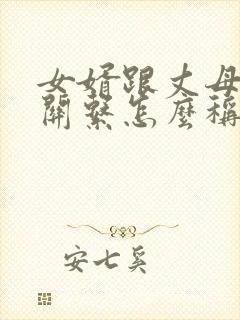 女婿跟丈母
關繫怎麼稱
安七奚